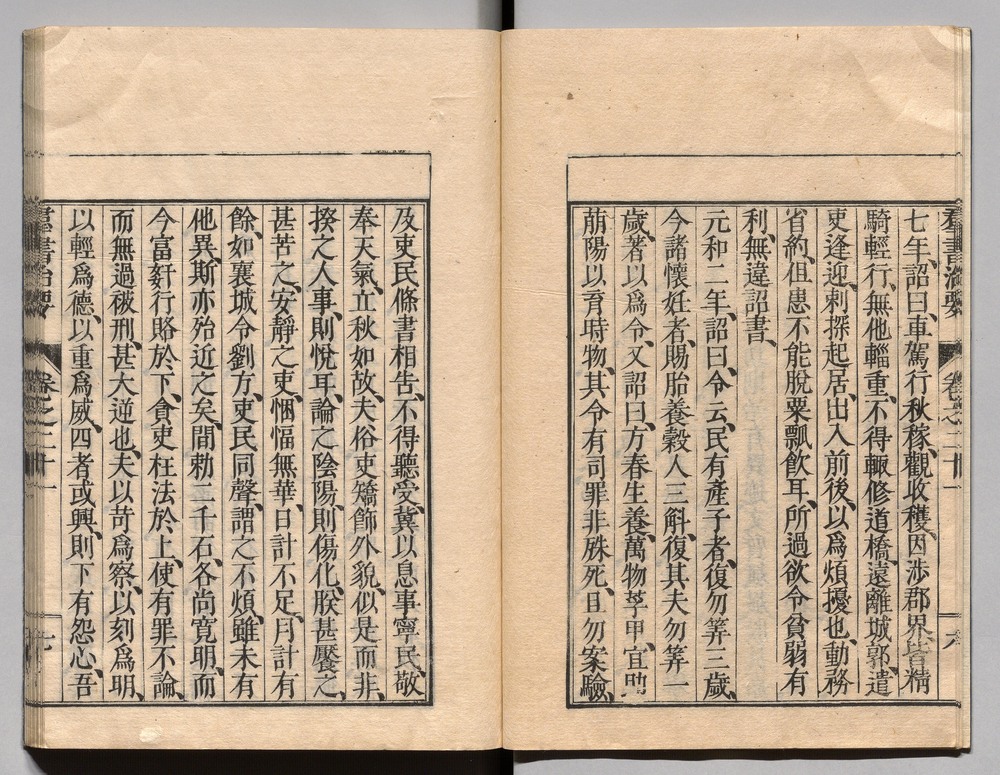 七年、詔曰、車駕行秋稼、觀收穫、因涉郡界、皆精
騎輕行、無他輜重、不得輙修道橋、遠離城郭、遣
吏逢迎、刺探起居、出入前後、以爲煩擾也、動務
省約、但患不能脫粟飄飲耳、所過欲令貧弱有
利、無違詔書、
元和二年、詔曰、令云、民有產子者、復勿筭三歲、
今諸懷妊者、賜胎養穀人三斛、復其夫勿筭一
歲、著以爲令、又詔曰、方春生養、萬物莩甲、宜助
萠陽以育時物、其令有司罪非殊死、且勿案驗、
及吏民條書相告、不得聽受、冀以息事寧民、敬
奉天氣、立秋如故、夫俗吏矯飾外貌、似是而非、
揆之人事、則悅耳、論之陰陽、則傷化、朕甚饜之、
甚苦之、安靜之吏、悃愊無華、日計不足、月計有
餘、如襄城令劉方、吏民同聲、謂之不煩、雖未有
他異、斯亦殆近之矣、間勑二千石、各尚寬明、而
今富姧行賂於下、貪吏枉法於上、使有罪不論、
而無過被刑、甚大逆也、夫以苛爲察、以刻爲明、
以輕爲德、以重爲威、四者或興、則下有怨心、吾
羣書治要 卷之二十一